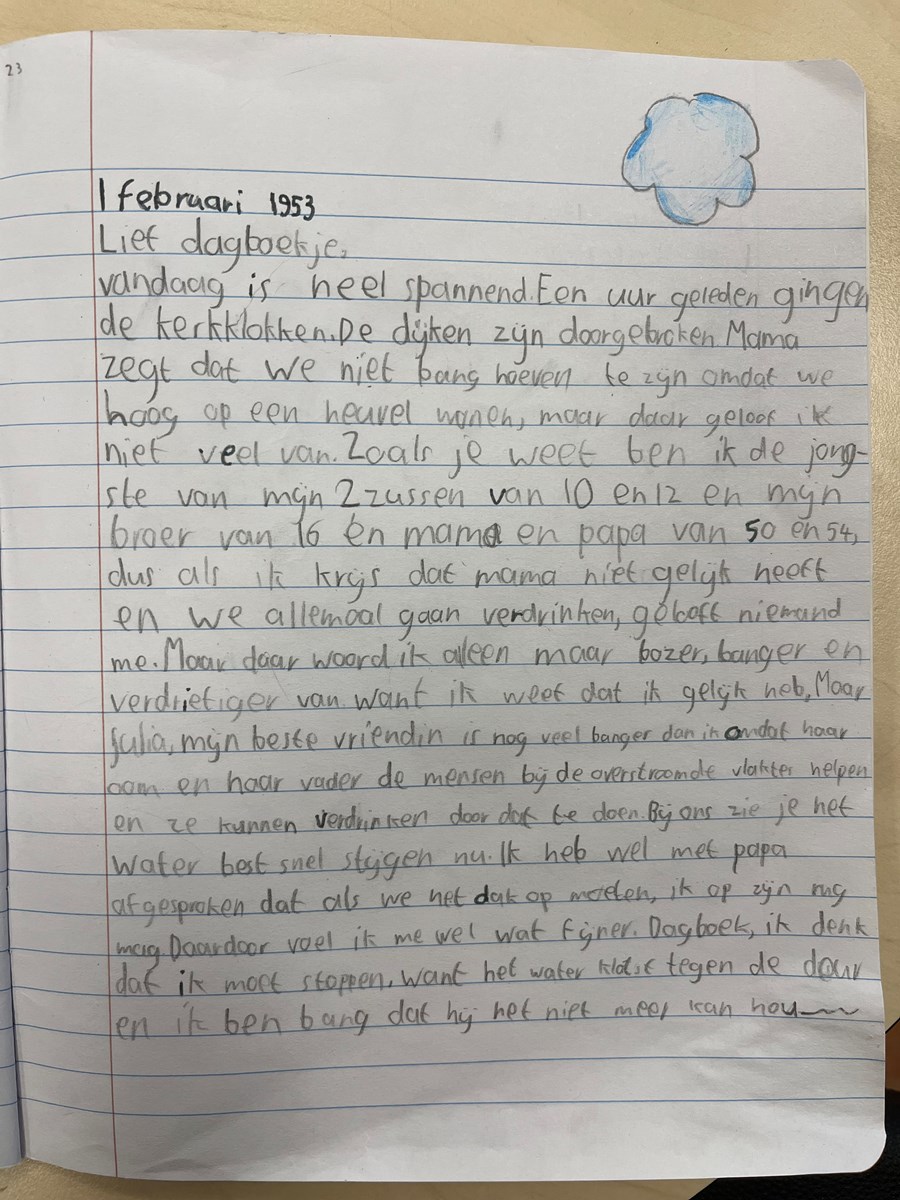 23
1 februari 1953
Lief dagboekje,
vandaag is heel spannend. Een uur geleden gingen
de kerkklokken. De dijken zijn doorgebroken. Mama
zegt dat we niet bang hoeven te zijn omdat we
hoog op een heuvel wonen, maar daar geloof ik
niet veel van. Zoals je weet ben ik de jong-
ste van mijn 2 zussen van 10 en 12 en mijn
broer van 16 en mama en papa van 50 en 54,
dus als ik krijs dat mama niet gelijk heeft
en we allemaal gaan verdrinken, gelooft niemand
me. Maar daar woord ik alleen maar bozer, banger en
verdrietiger van. want ik weet dat ik gelijk heb. Maar
Julia, mijn beste vriendin is nog veel banger dan ik omdat haar
oom en haar vader de mensen bij de overstroomde vlaktes helpen
en ze kunnen verdrinken door dat te doen. Bij ons zie je het
water best snel stijgen nu. Ik heb wel met papa
afgesproken dat als we het dak op moeten, ik op zijn rug
mag. Daardoor voel ik me wel wat fijner. Dagboek, ik denk
dat ik moet stoppen, want het water klotst tegen de deur
en ik ben bang dat hij het niet meer kan hou